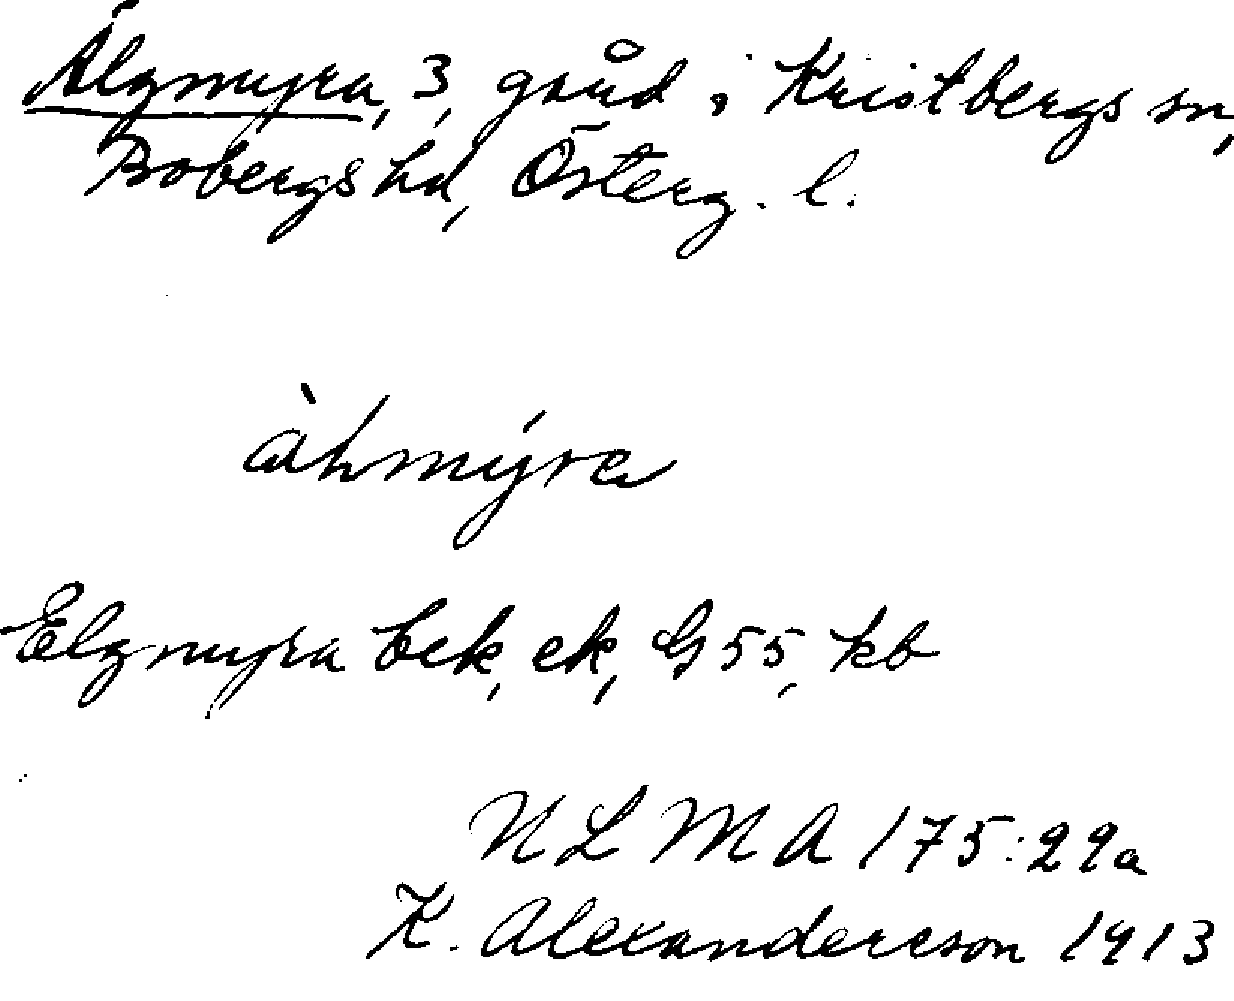 Älgmyra, 3, gård i Kristbergs sn,
Bobergs hd, Österg. l.
àhmýra
Elgmyra bek, ek, G 55, kb
NLMA 175:29a
K. Alexanderson 1913